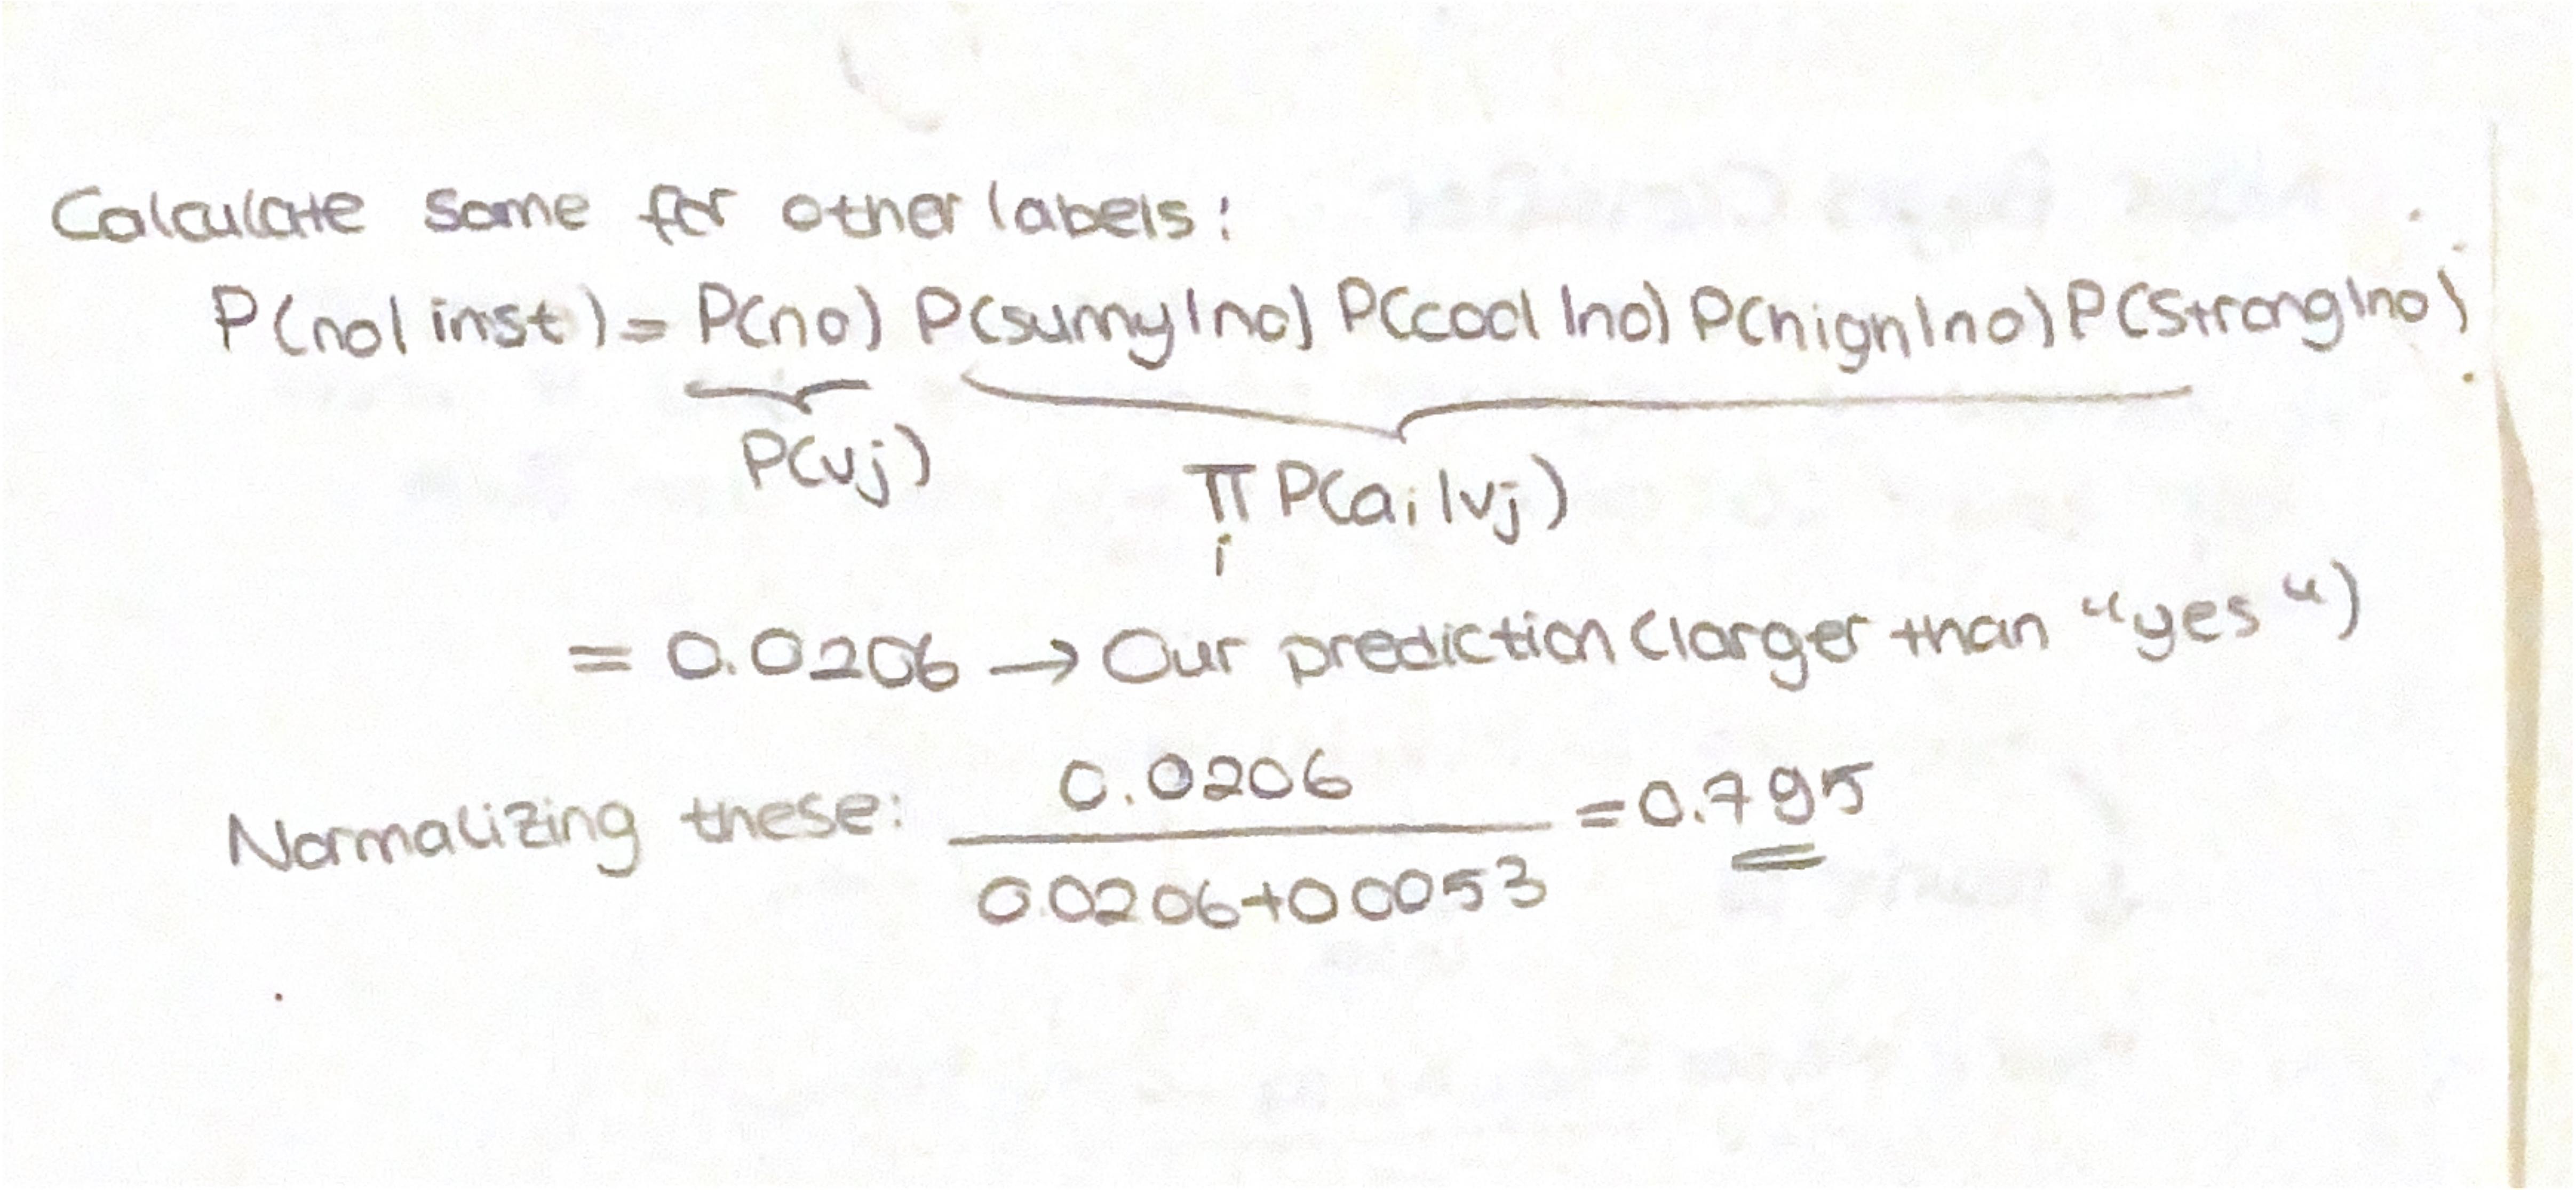 Calculate same for other labels:
P(no|inst) = P(no) P(sunny|no) P(cool|no) P(high|no) P(Strong|no)
P(vj)
∏ P(ai|vj)
i
= 0.0206 → Our prediction (larger than "yes")
0.0206
Normalizing these: = 0.795
0.0206+0.0053